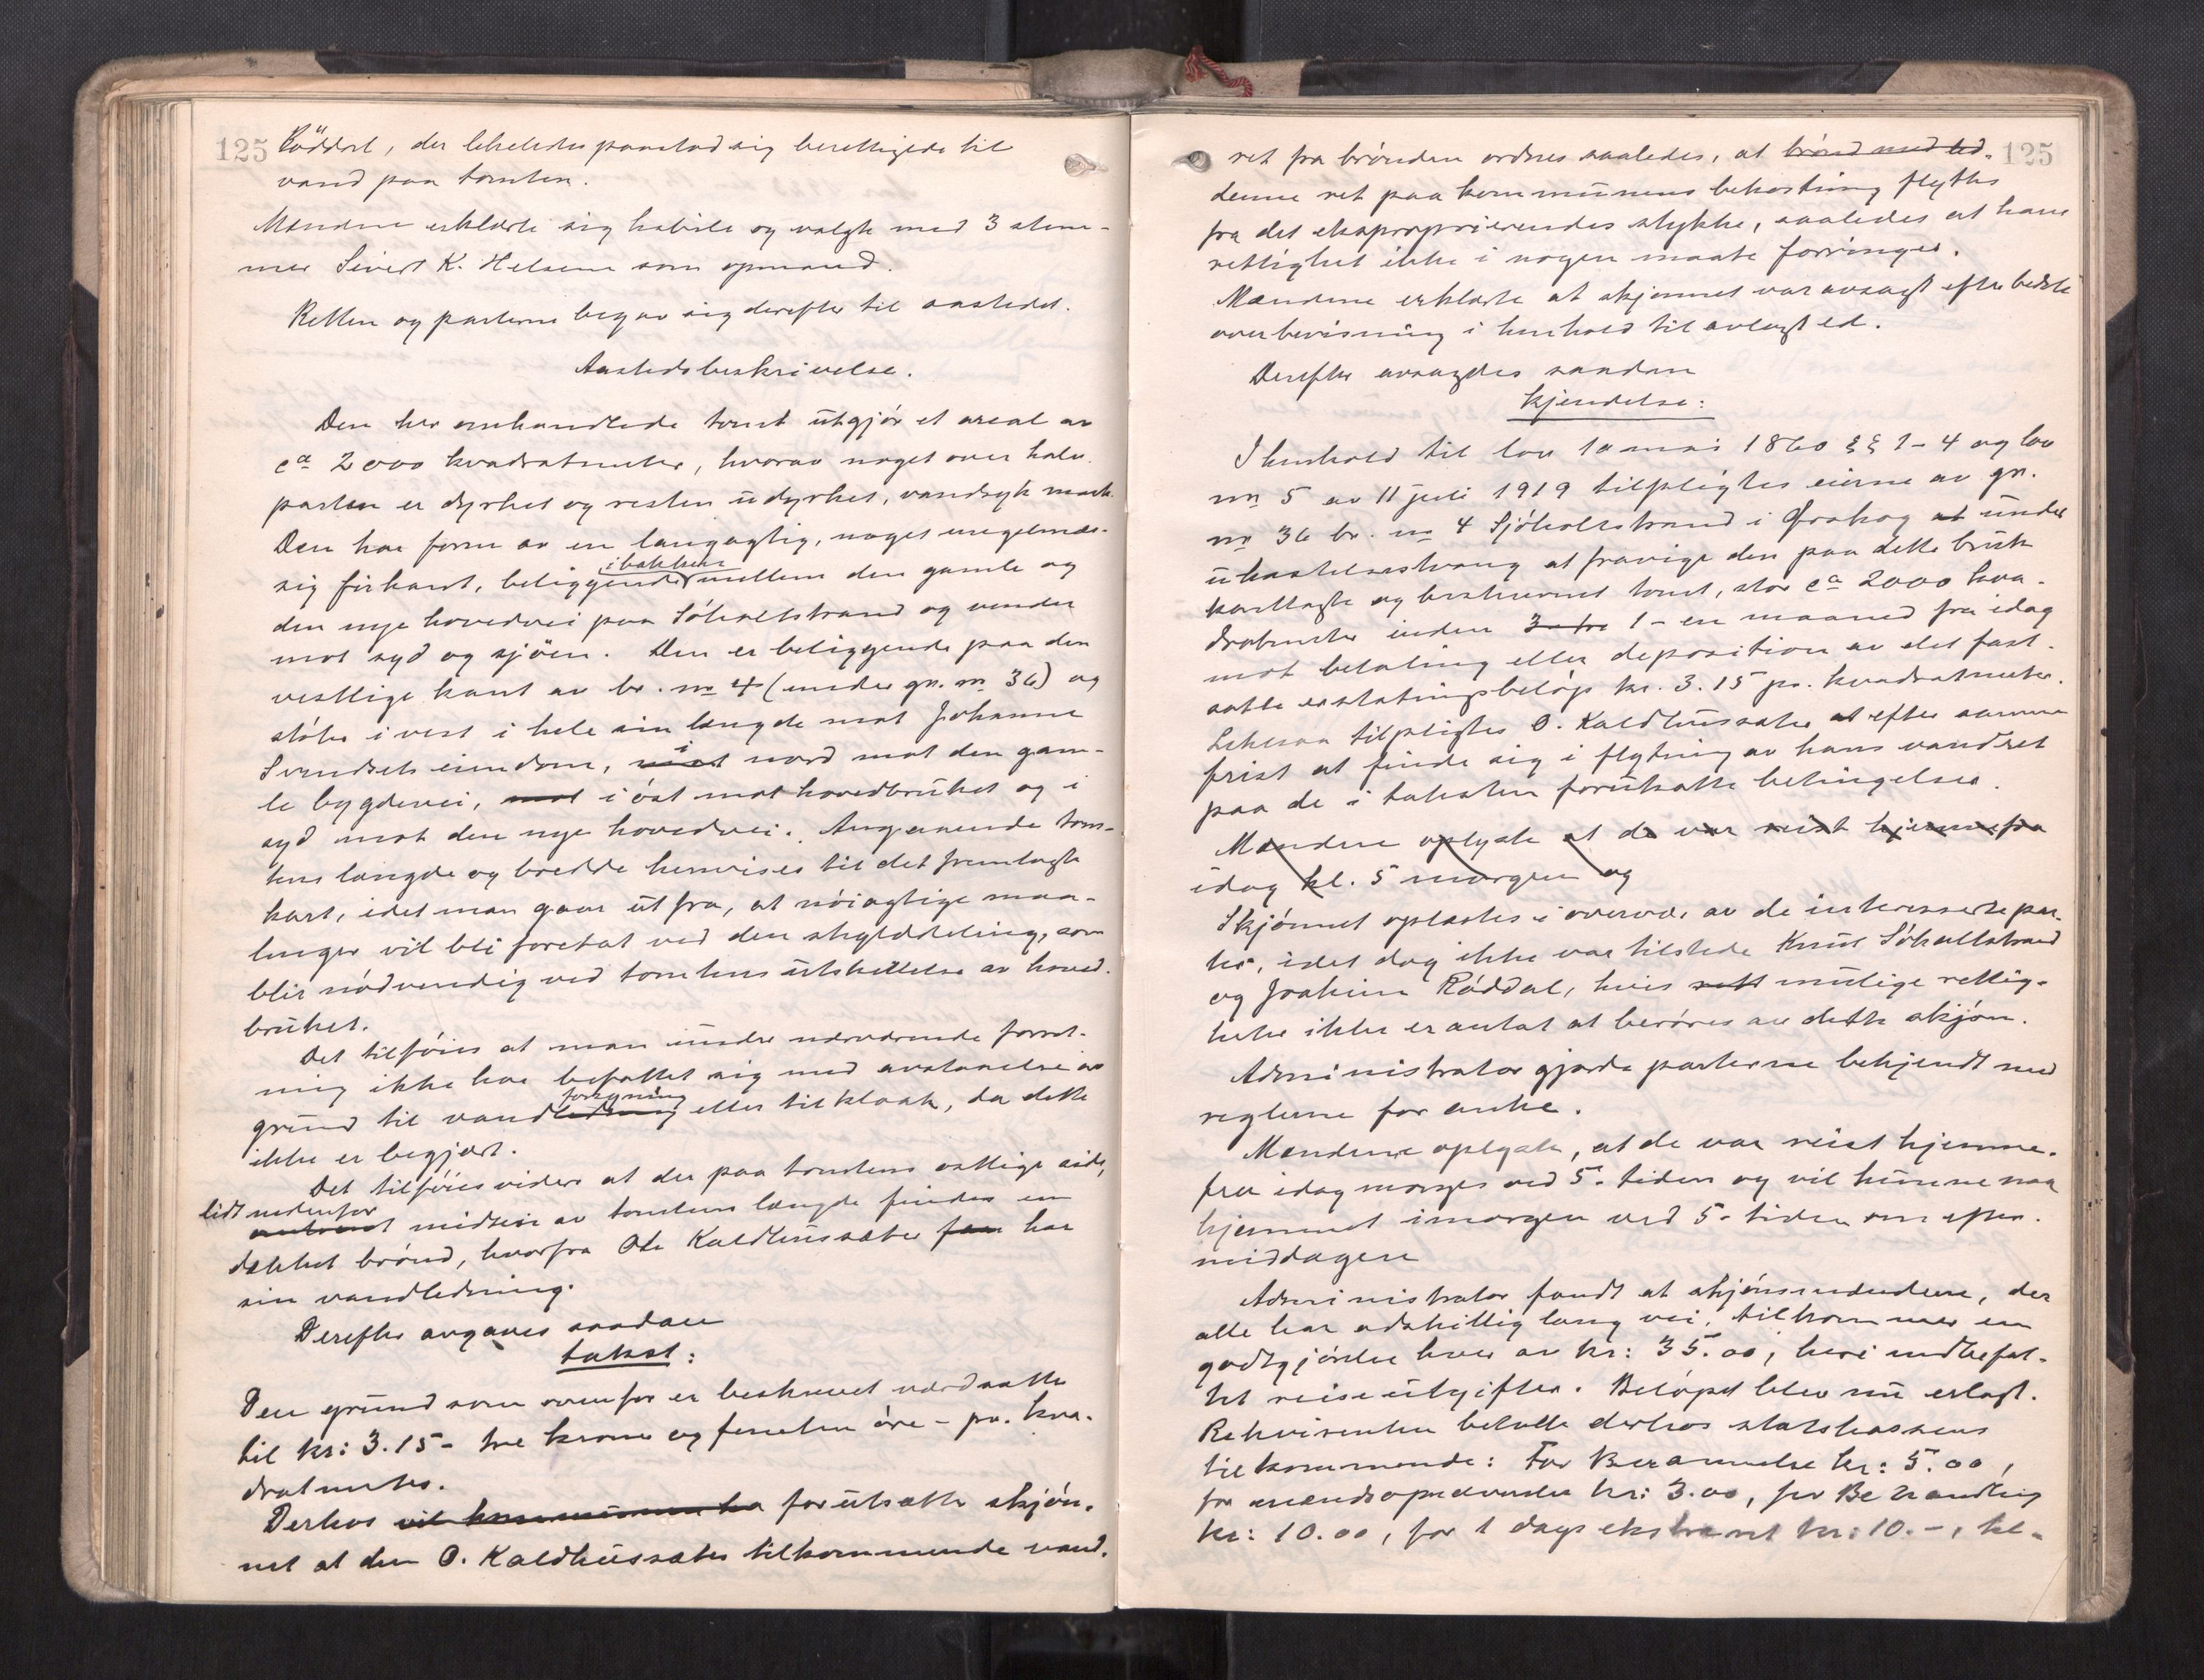 125
Röddal, der likeledes paastod sig berettigede til
vand paa tomten.
Mændene erklærte sig habile og valgte med 3 stem-
mer Sivert K. Helsem som opmand.
Retten og parterne begav sig derefter til aastedet.
Aastedsbeskrivelse.
Den her omhandlede tomt utgjör et areal av
ca 2000 kvadratmeter, hvorav noget over halv-
parten er dyrket og resten udyrket, vandsyk mark.
Den har form av en langagtig, noget uregelmæs-
sig firkant, beliggende i bakken mellem den gamle og
den nye hovedvei paa Söholtstrand og vender
mot syd og sjöen. Den er beliggende paa den
vestlige kant av br. no 4 (under gn. no 36) og
støter i vest i hele sin længde mot Johanne
Svendsets eiendom, mot i nord mot den gam-
le bygdevei, mot i öst mot hovedbruket og i
syd mot den nye hovedvei. Angaaende tom-
tens længde og bredde henvises til det fremlagte
kart, idet man gaar ut fra, at nöiagtige maa-
linger vil bli foretat ved den skylddeling, som
blir nödvendig ved tomtens utskillelse av hoved-
bruket.
Det tilföies at man under nærværende forret-
ning ikke har befattet sig med avstaaelse av
grund til vandledning forsyning eller til kloak, da dette
ikke er begjært.
Det tilföies videre at der paa tomtens östlige side,
lidt nedenfor
omtrent midtveis av tomtens længde findes en
dækket brönd, hvorfra Ole Kaldhussæter faar har
sin vandledning.
Derefter avgaves saadan
takst:
Den grund som ovenfor er beskrevet værdsattes
til kr: 3.15 - tre kroner og femten öre - pr. kva-
dratmeter.
Derhos vil kommunen ha forutsætter skjön-
net at den O. Kaldhussæter tilkommende vand-
125
ret fra brönden ordnes saaledes, at brönd med led-
denne ret paa kommunens bekostning flyttes
fra det eksproprierendes stykke, saaledes at hans
rettighet ikke i nogen maate forringes.
Mændene erklærte at skjønnet var avsagt efter bedste
overbevisning i henhold til avlagt ed.
Derefter avsagdes saadan
Kjendelse:
I henhold til lov 10 mai 1860 §§ 1-4 og lov
no 5 av 11 juli 1919 tilpligtes eierne av gn.
no 36 br. no 4 Sjöholtstrand i Ørskog at under
utkastelsestvang at fravige den paa dette bruk
kartlagte og beskrevne tomt, stor ca 2000 kva-
dratmeter inden 3 - tre 1 - en maaned fra idag
mot betaling eller deposition av det fast-
satte erstatningsbelöp kr. 3.15 pr. kvadratmeter.
Likesaa tilpligtes O. Kaldhussæter at efter samme
frist at finde sig i flytning av hans vandret
paa de i taksten forutsatte betingelser.
Mændene oplyste at de var reist hjemmefra
idag kl. 5 morgen og
Skjönnet oplæstes i overvær av de interesserte par-
ter, idet dog ikke var tilstede Knut Söholtstrand
og Joakim Röddal, hvis rett mulige rettig-
heter ikke er antat at beröres av dette skjön.
Administrator gjorde parterne bekjendt med
reglerne for anke.
Mændene oplyste, at de var reist hjemme-
fra idag morges ved 5-tiden og vil kunne naa
hjemmet imorgen ved 5-tiden om efter-
middagen
Administrator fandt at skjönsmændene, der
alle har adskillig lang vei, tilkommer en
godtgjörelse hver av kr: 35.00, heri indbefat-
tet reiseutgifter. Belöpet blev nu erlagt.
Rekvirenten betalte derhos statskassens
tilkommende: For Berammelse kr: 5.00,
for mændsopnævnelse kr: 3.00, for Behandling
kr: 10.00, for 1 dags ekstraret kr: 10.-, til-